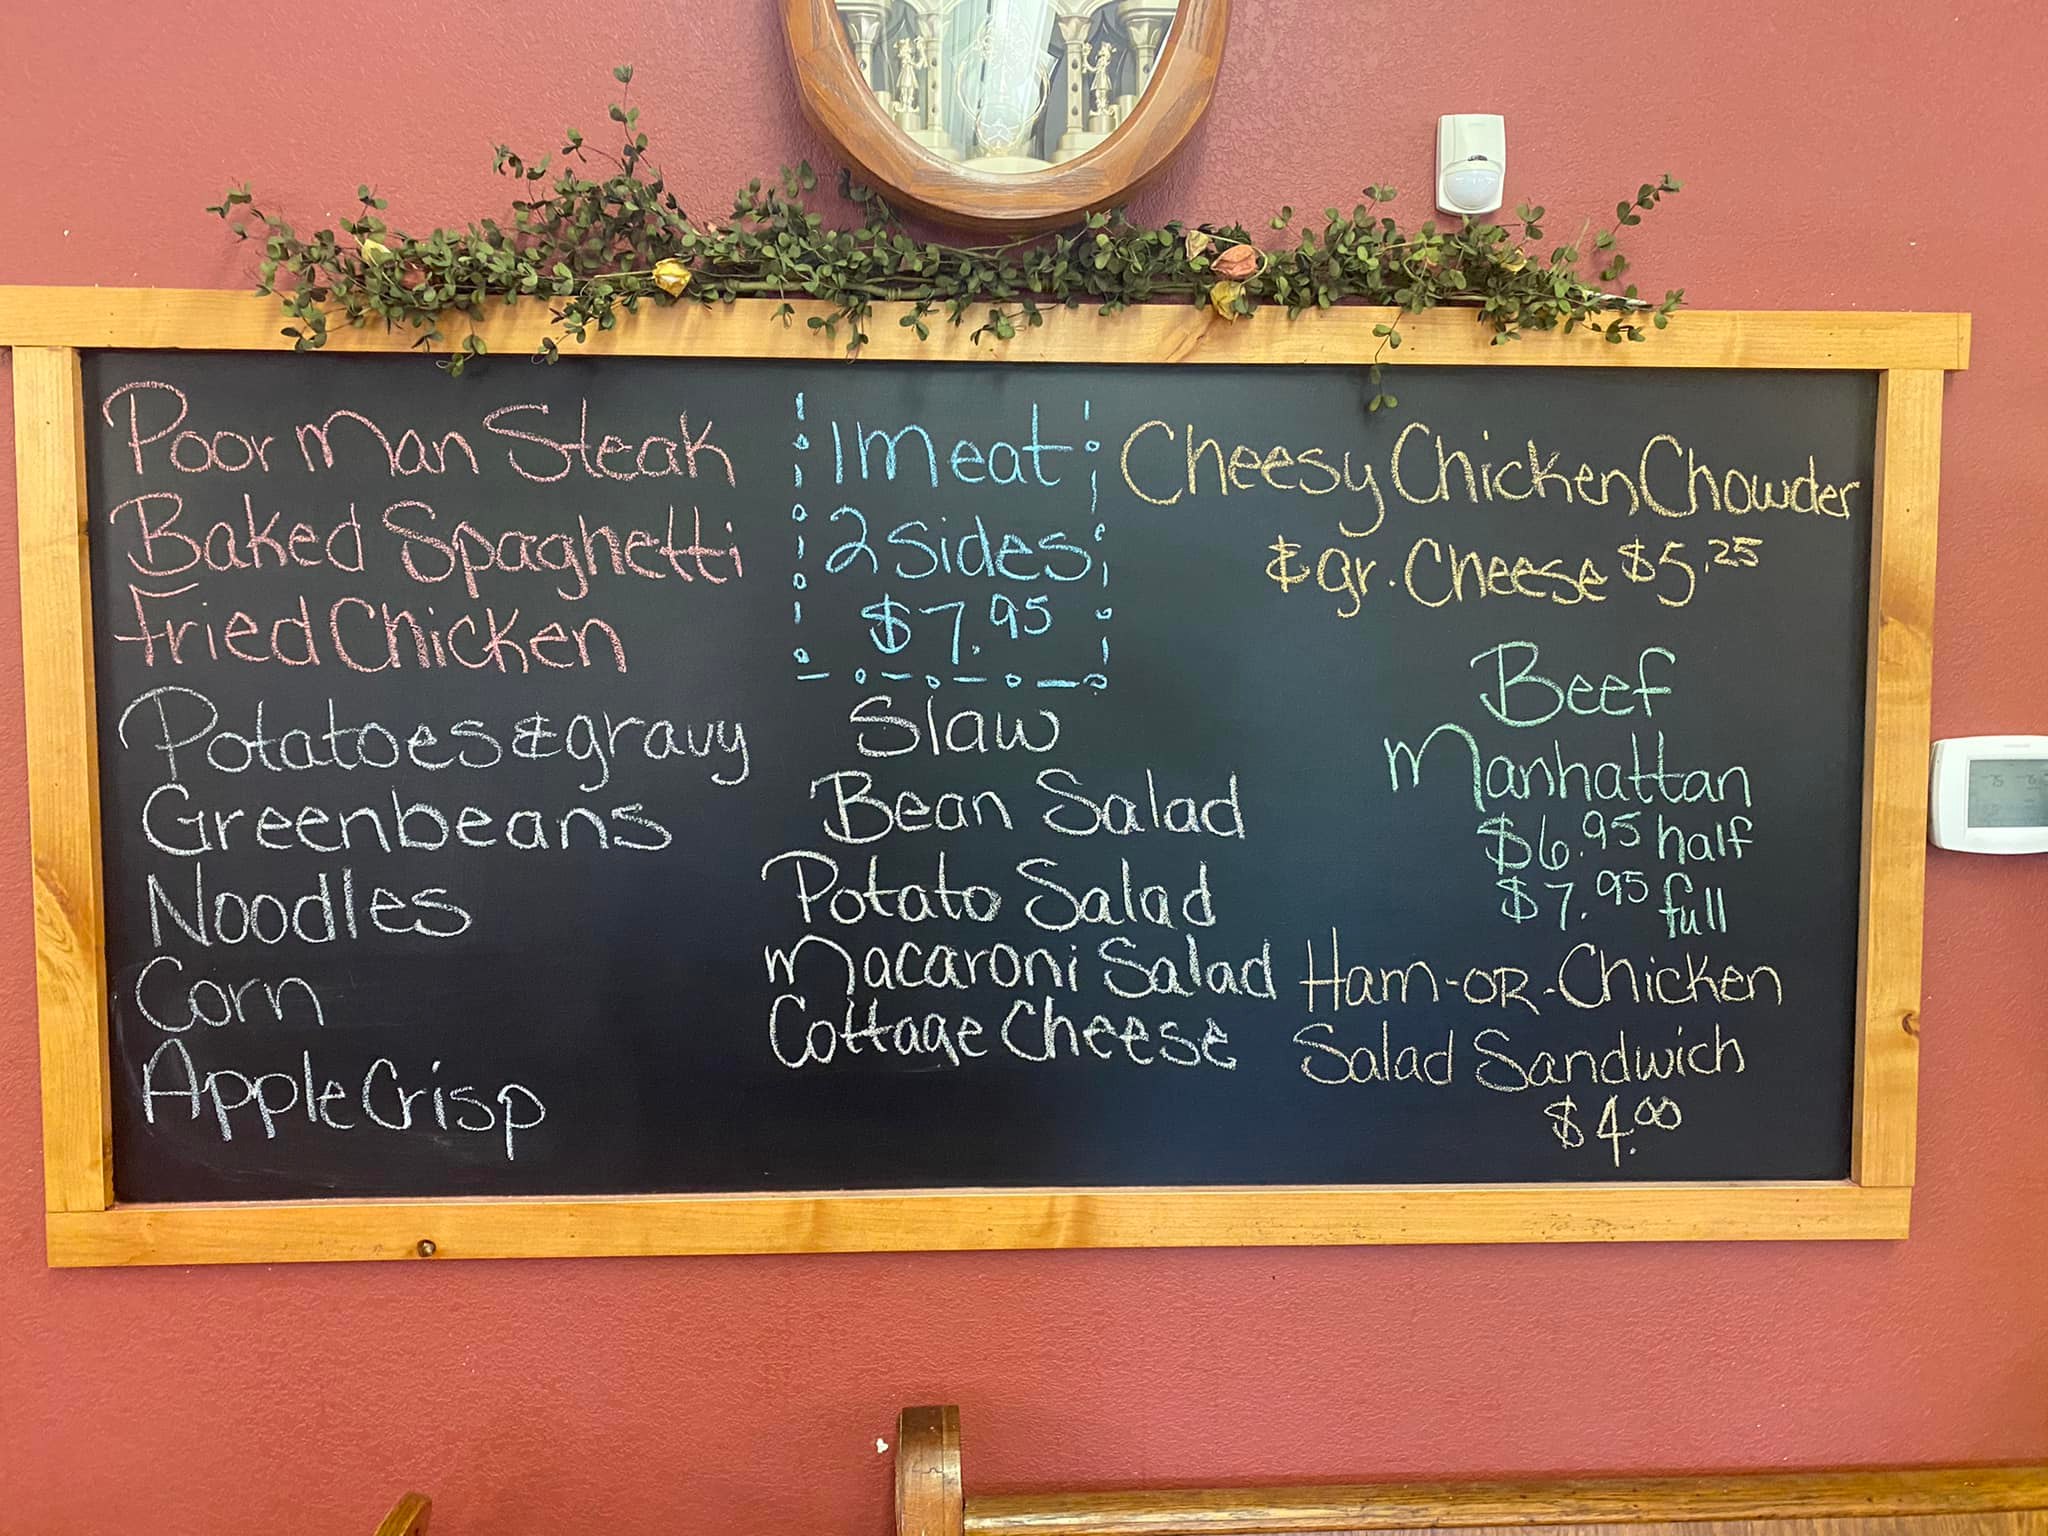 Poor Man Steak
Baked Spaghetti
Fried Chicken
Potatoes & gravy
Greenbeans
Noodles
Corn
Apple Crisp
1 Meat
2 sides
$7.95
Slaw
Bean Salad
Potato Salad
Macaroni Salad
Cottage Cheese
Cheesy Chicken Chowder
& gr. Cheese $5.25
Beef
Manhattan
$6.95 half
$7.95 full
Ham-OR-Chicken
Salad Sandwich
$4.00